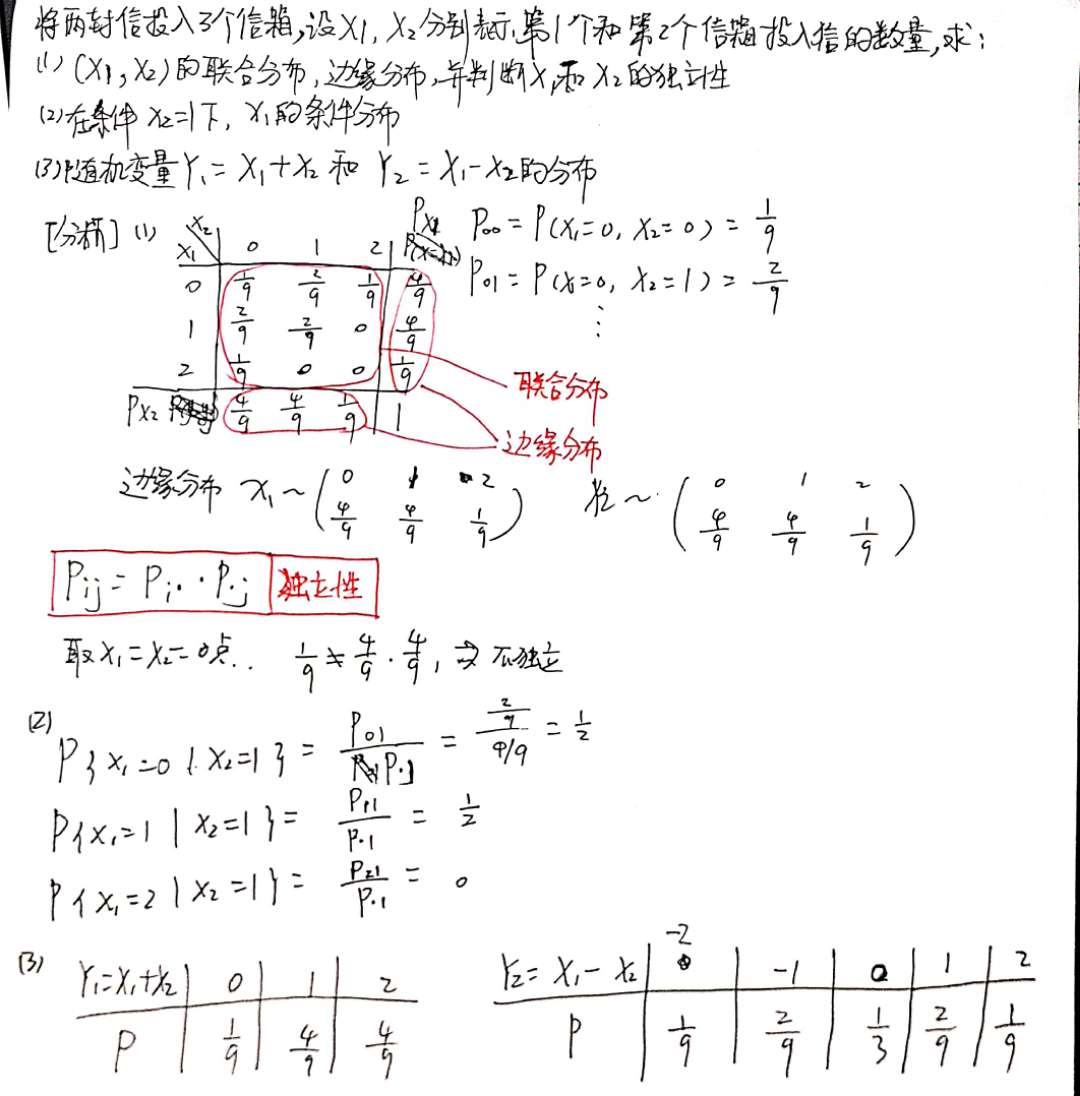 将两封信投入3个信箱,设X1, X2分别表示,第1个和第2个信箱投入信的数量,求:
(1) (X1, X2)的联合分布,边缘分布,并判断X1和X2的独立性
(2)在条件X2=1下, X1的条件分布
(3)随机变量Y1 = X1+X2 和 Y2 = X1-X2的分布
[分析] (1) X1 X2 0 1 2 PX1
0 1/9 2/9 1/9 4/9
1 2/9 2/9 0 4/9
2 1/9 0 0 1/9
PX2 4/9 4/9 1/9 1
P00 = P(X1=0, X2=0) = 1/9
P01 = P(X=0, X2=1) = 2/9
⋮
联合分布
边缘分布
边缘分布 X1 ~ (0 1 2
4/9 4/9 1/9)
X2 ~ (0 1 2
4/9 4/9 1/9)
Pij = Pi· · P·j 独立性
取X1=X2=0点.. 1/9 ≠ 4/9 · 4/9, ⇒ 不独立
(2)
P{X1=0 | X2=1} = P01/P·1 = (2/9)/(4/9) = 1/2
P{X1=1 | X2=1} = P11/P·1 = 1/2
P{X1=2 | X2=1} = P21/P·1 = 0
(3) Y1=X1+X2 0 1 2
P 1/9 4/9 4/9
Y2= X1-X2 -2 -1 0 1 2
P 1/9 2/9 1/3 2/9 1/9